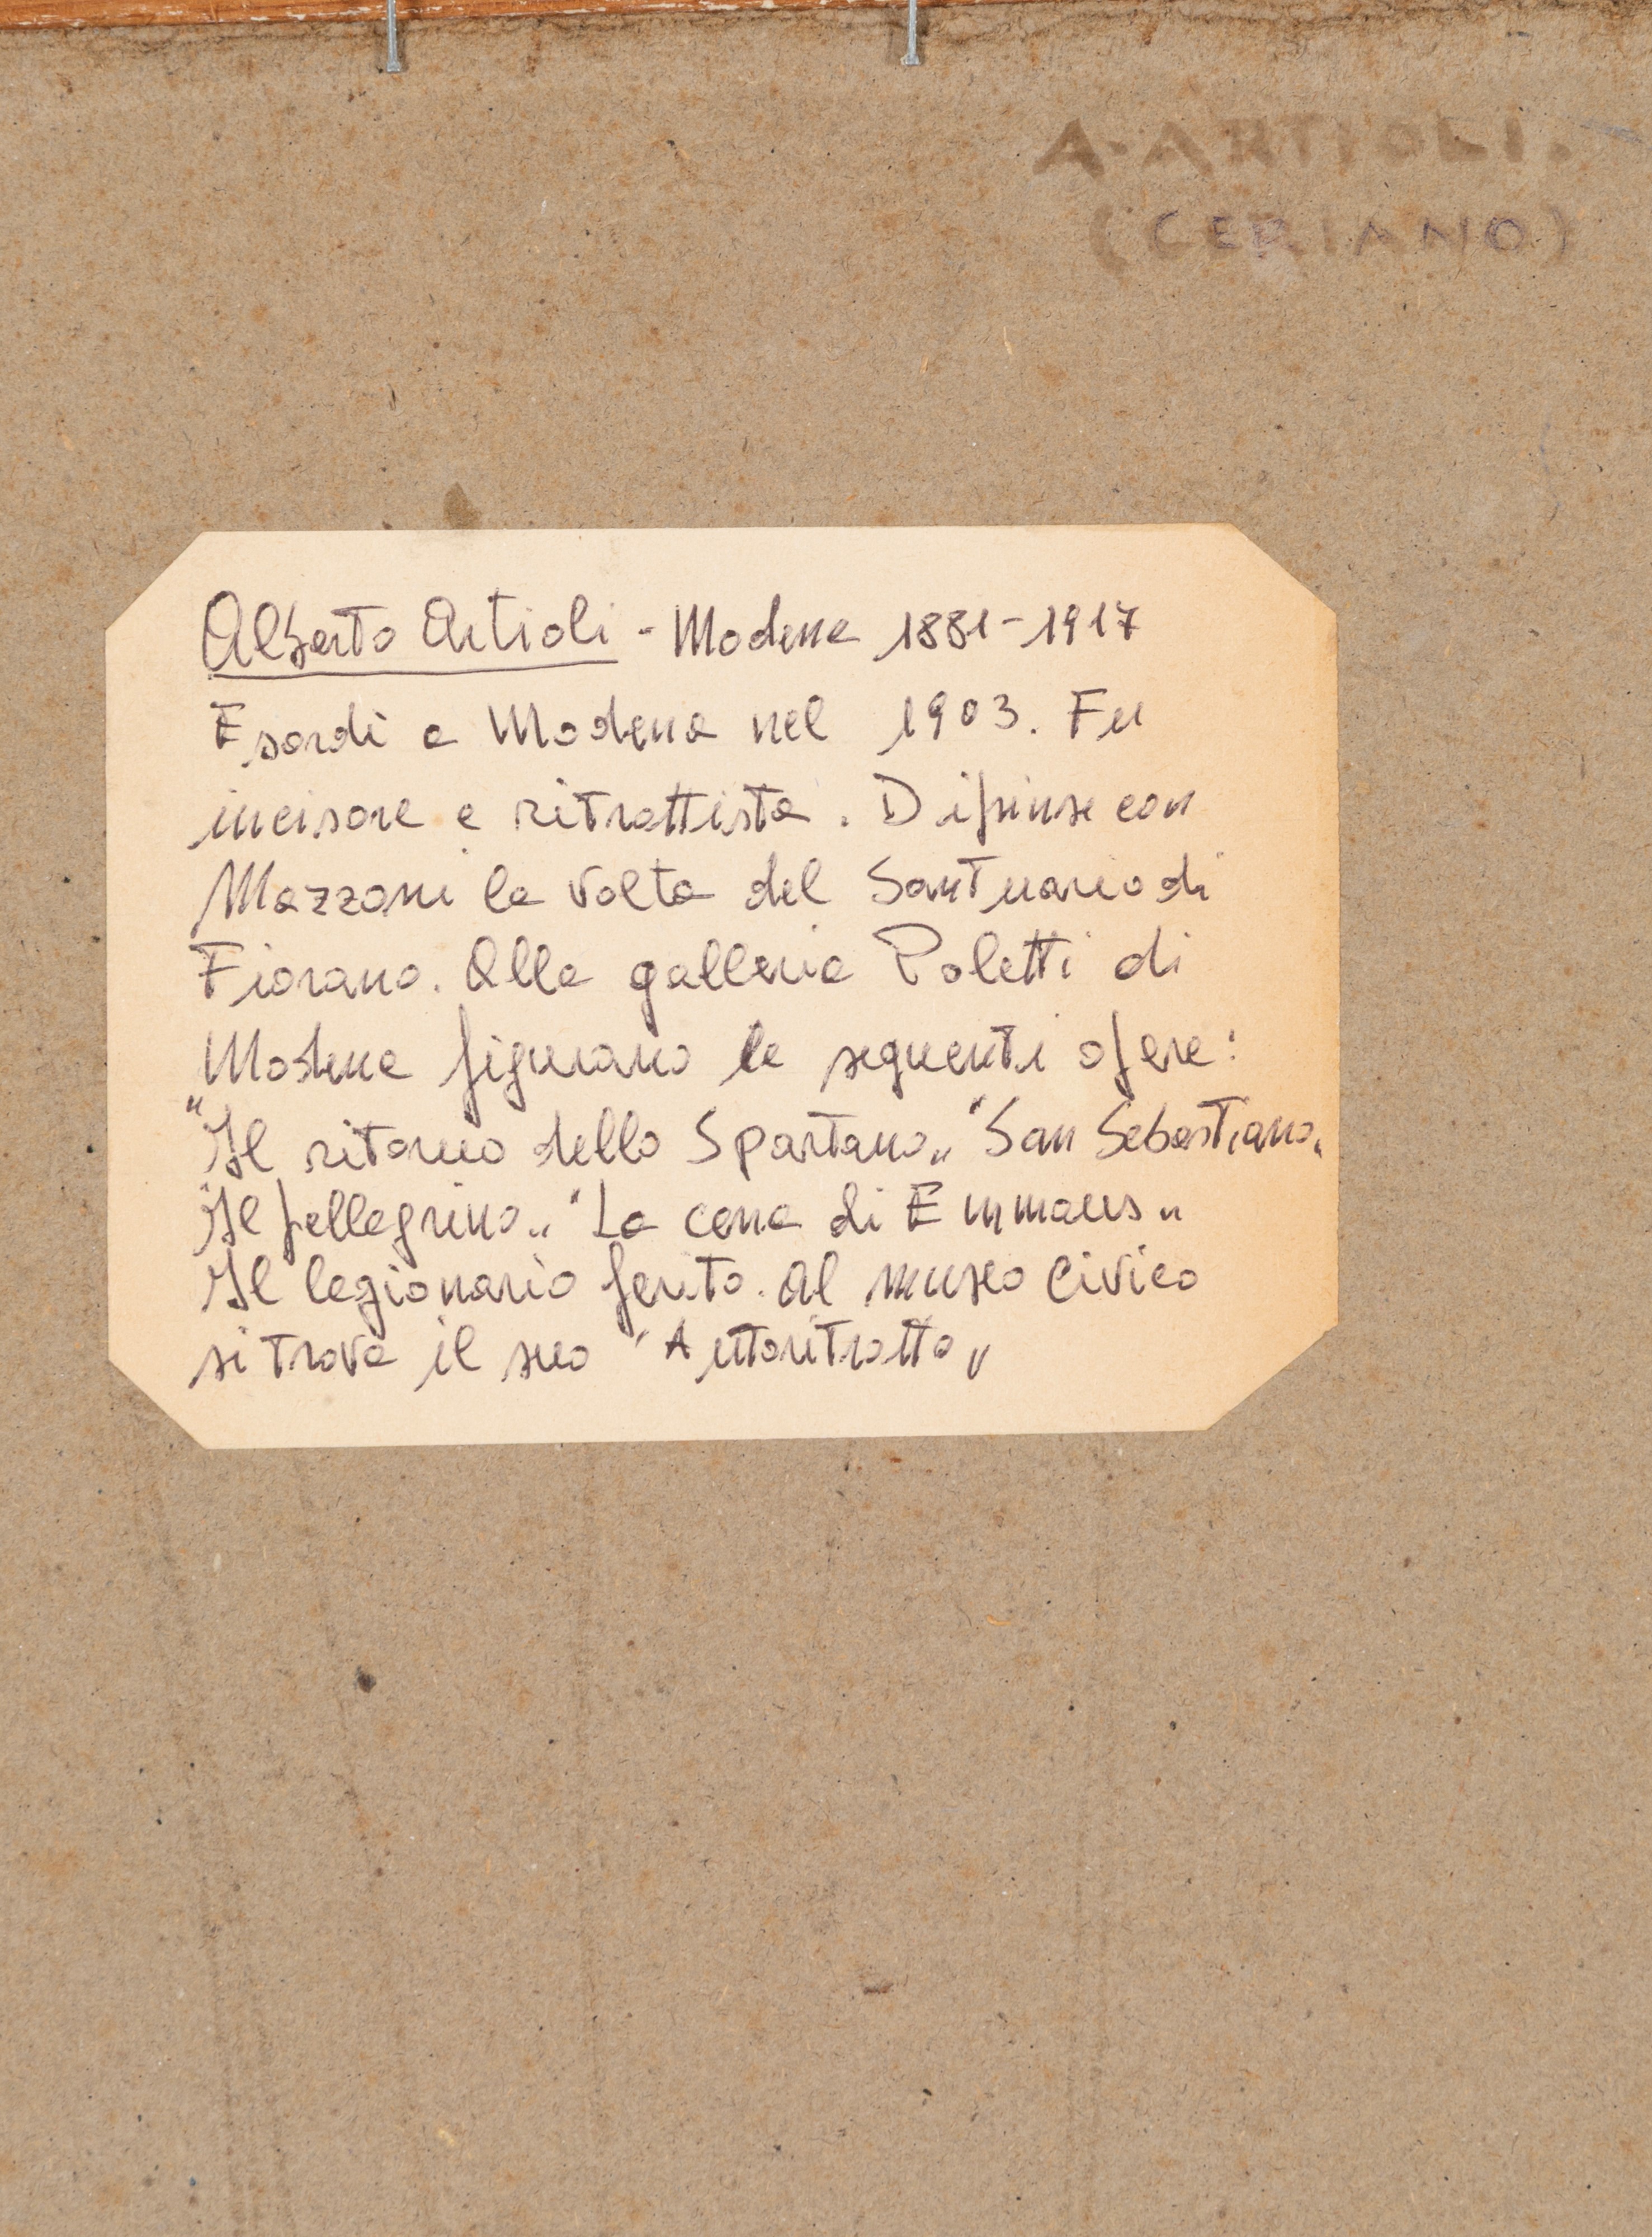 A. ARTIOLI.
(CERIANO)
Alberto Artioli - Modena 1881-1917
Esordì a Modena nel 1903. Fu
incisore e ritrattista. Dipinse con
Mazzoni la volta del Santuario di
Fiorano. Alla galleria Poletti di
Modena figurano le seguenti opere:
"Il ritorno dello Spartano„ "San Sebastiano„
"Il pellegrino„ "La cena di Emmaus„
Il legionario ferito. Al museo Civico
si trova il suo "Autoritratto„